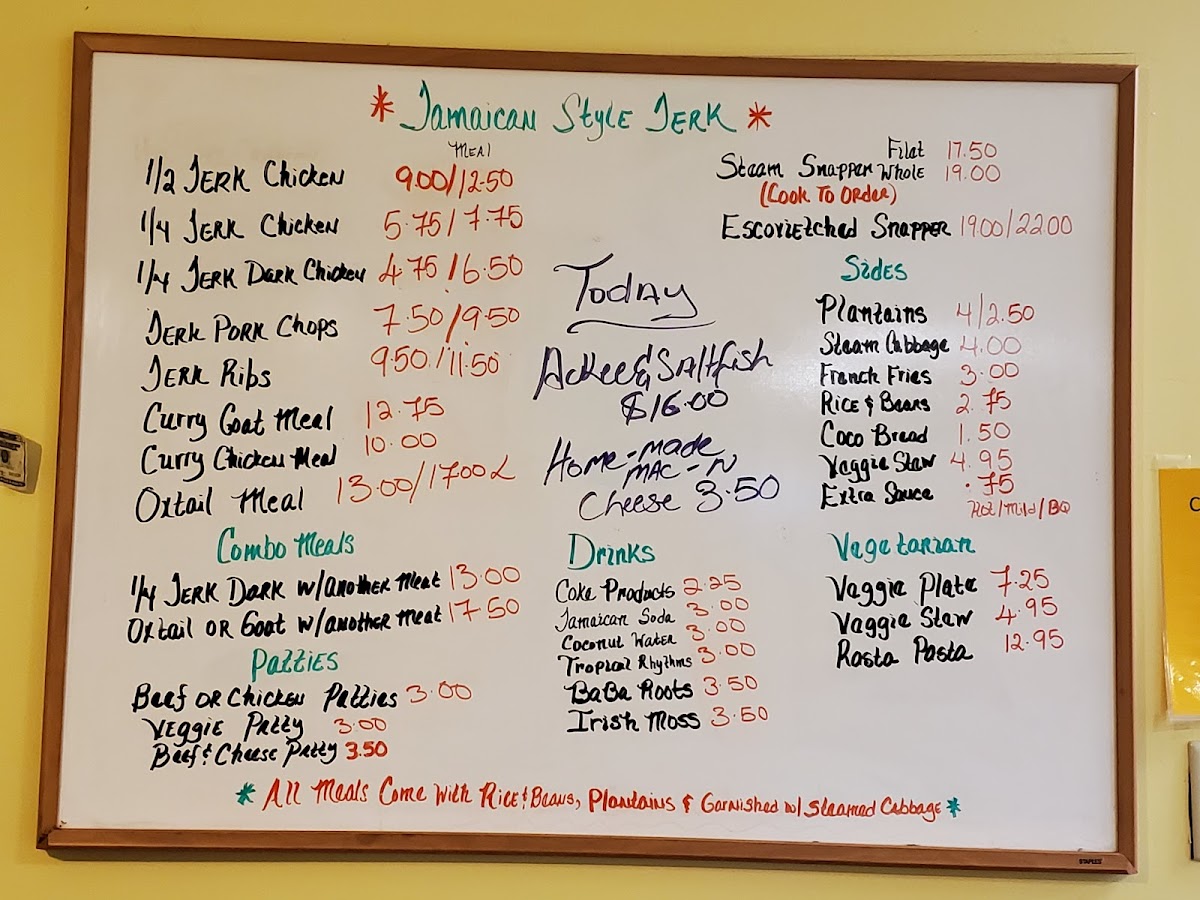 * Jamaican Style Jerk *
Meal
1/2 Jerk Chicken 9.00/12.50
1/4 Jerk Chicken 5.75/7.75
1/4 Jerk Dark Chicken 4.75/6.50
Jerk Pork Chops 7.50/9.50
Jerk Ribs 9.50/11.50
Curry Goat Meal 12.75
Curry Chicken Meal 10.00
Oxtail Meal 13.00/17.00 L
Combo Meals
1/4 Jerk Dark w/another meat 13.00
Oxtail OR Goat w/another meat 17.50
Patties
Beef OR Chicken Patties 3.00
Veggie Patty 3.00
Beef & Cheese Patty 3.50
Today
Ackee & Saltfish
$16.00
Home-made
Mac-N
Cheese 3.50
Drinks
Coke Products 2.25
Jamaican Soda 3.00
Coconut Water 3.00
Tropical Rhythms 3.00
BaBa Roots 3.50
Irish Moss 3.50
Filet 17.50
Steam Snapper Whole 19.00
(Cook To Order)
Escovietched Snapper 19.00/22.00
Sides
Plantains 4/2.50
Steam Cabbage 4.00
French Fries 3.00
Rice & Beans 2.75
Coco Bread 1.50
Veggie Stew 4.95
Extra Sauce .75
Hot/Mild/BQ
Vegetarian
Veggie Plate 7.25
Veggie Stew 4.95
Rasta Pasta 12.95
* All Meals Come With Rice & Beans, Plantains & Garnished w/ Steamed Cabbage *
STAPLES